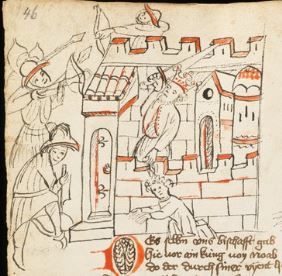 46
Es selbn ons bischaft gab
hie vor ain kung von Moab
do der durch siner